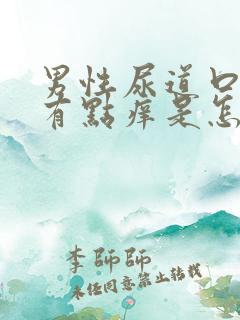 男性尿道口
有點痒是怎
李師師
未经同意禁止转载